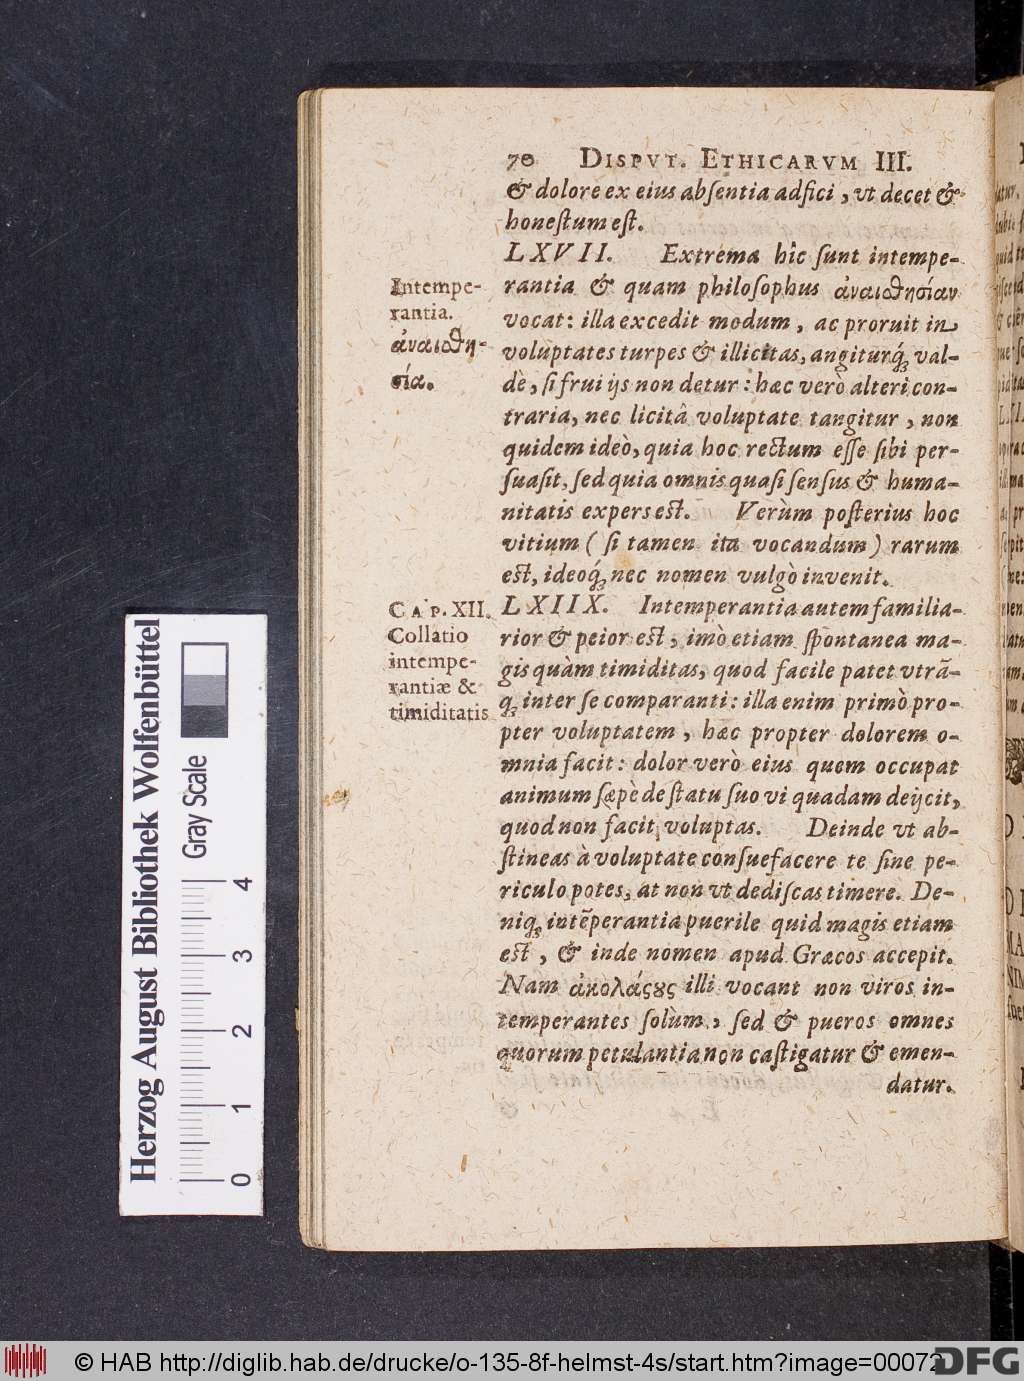 70 DISPVT. ETHICARVM III.
& dolore ex eius absentia adfici, vt decet &
honestum est.
LXVII. Extrema hîc sunt intempe-
rantia & quam philosophus ἀναισθησίαν
vocat: illa excedit modum, ac proruit in
voluptates turpes & illicitas, angiturq́; val-
dè, si frui ijs non detur: hæc verò alteri con-
traria, nec licitâ voluptate tangitur, non
quidem ideò, quia hoc rectum esse sibi per-
suasit, sed quia omnis quasi sensus & huma-
nitatis expers est. Verùm posterius hoc
vitium (si tamen ita vocandum) rarum
est, ideoq́; nec nomen vulgò invenit.
Intempe-
rantia.
ἀναισθη-
σία.
LXIIX. Intemperantia autem familia-
rior & peior est, imò etiam spontanea ma-
gis quàm timiditas, quod facile patet vtrã-
q; inter se comparanti: illa enim primò pro-
pter voluptatem, hæc propter dolorem o-
mnia facit: dolor verò eius quem occupat
animum sæpè de statu suo vi quadam deijcit,
quod non facit voluptas. Deinde vt ab-
stineas à voluptate consuefacere te sine pe-
riculo potes, at non vt dediscas timere. De-
niq; intẽperantia puerile quid magis etiam
est, & inde nomen apud Græcos accepit.
Nam ἀκολάςȣς illi vocant non viros in-
temperantes solum, sed & pueros omnes
quorum petulantia non castigatur & emen-
datur.
CAP. XII.
Collatio
intempe-
rantiæ &
timiditatis
Herzog August Bibliothek Wolfenbüttel
Gray Scale
0 1 2 3 4
© HAB http://diglib.hab.de/drucke/o-135-8f-helmst-4s/start.htm?image=00072
DFG